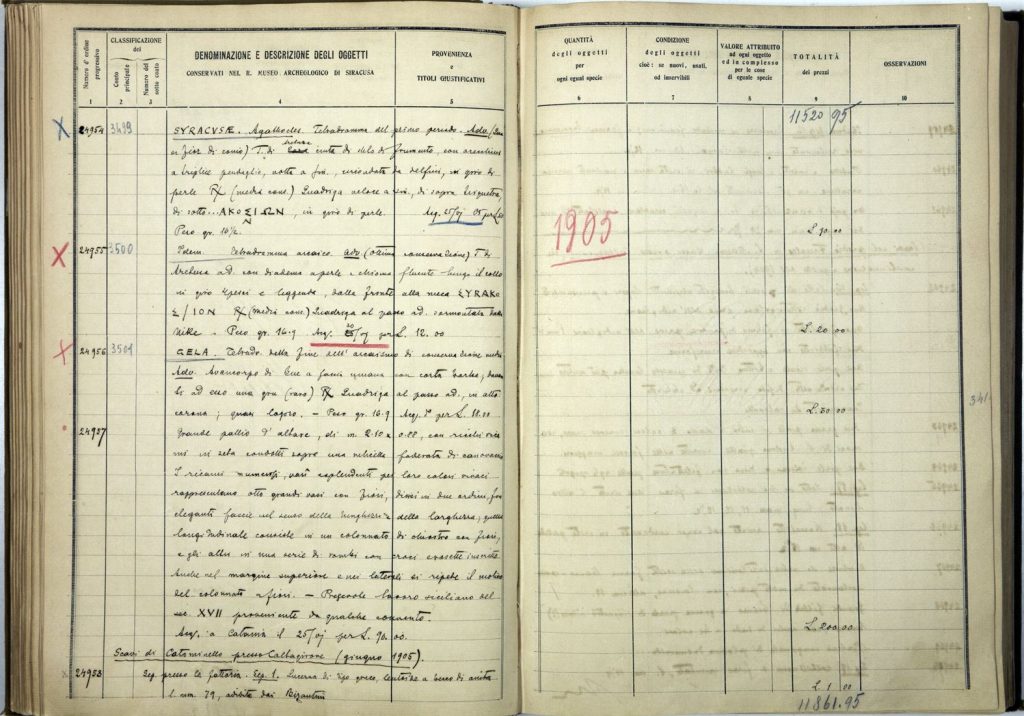 Numero d'ordine progressivo
CLASSIFICAZIONE dei
Conto principale
Numero del sotto conto
DENOMINAZIONE E DESCRIZIONE DEGLI OGGETTI
CONSERVATI NEL R. MUSEO ARCHEOLOGICO DI SIRACUSA
PROVENIENZA
e
TITOLI GIUSTIFICATIVI
1 2 3 4 5
24954 3499 SYRACUSÆ. Agathocles Tetradramma del primo periodo. Adv.
di conio) T. di cinta di di frumento, con orecchino
a triplice pendaglio, volta a sin., circondata da delfini, in giro di
perle ℞ (media cons.) Quadriga veloce a sin., di sopra triquetra,
di sotto... ΑΚΟΣΙΩΝ, in giro di perle. Acq. 25/VI 05 per L.
N
Peso gr. 16½.
24955 3500 Idem. Tetradramma arcaico. Adv. (ottima conservazione) T. di
Arethusa ad. con diadema a perle e chioma fluente lungo il collo
in giro 4 pesci e leggenda, dalla fronte alla nuca ΣΥΡΑΚΟ
Σ/ΙΟΝ ℞ (media cons.) Quadriga al passo ad. sormontata dalla
Nike. - Peso gr. 16.9 Acq. per L. 12.00
24956 3501 GELA. Tetradr. della fine dell' arcaismo di conservazione media
Adv. Avancorpo di bue a faccia umana con corta barba, davan
ti ad esso una gru (raro) ℞ Quadriga al passo ad., in alto
corona; logoro. - Peso gr. 16.9 Acq. per L.
24927 Grande pallio d' altare, di m. 2.10 x 0.88, con ricchi rica
mi in seta condotti sopra una foderata di canovaccio
I ricami numerosi, vari splendenti per loro colori vivaci
rappresentano otto grandi vasi con fiori, divisi in due ordini, fra
eleganti fascie nel senso della lunghezza e della larghezza; quella
longitudinale consiste in un colonnato di chiostro con fiori,
e gli altri in una serie di rombi con croci inscritte
Anche nel margine superiore e nei laterali si ripete il motivo
del colonnato e fiori. - Pregevole lavoro siciliano del
sec. XVII proveniente da qualche convento.
Acq. a Catania il 25/VI per L. 90.00.
Scavi di Catominello presso Caltagirone (giugno 1905).
24958 Sep. presso la fattoria. Sep. 1. Lucerna di tipo greco, a becco di
l. mm. 79, adibita dai Bizantini
QUANTITÀ
degli oggetti
per
ogni egual specie
CONDIZIONE
degli oggetti
cioè: se nuovi, usati,
od inservibili
VALORE ATTRIBUITO
ad ogni oggetto
ed in complesso
per le cose
di eguale specie
TOTALITÀ
dei prezzi
OSSERVAZIONI
6 7 8 9 10
11520 95
1905
L. 20.00
L. 30.00
341
L. 200.00
L. 1 00
11861.95